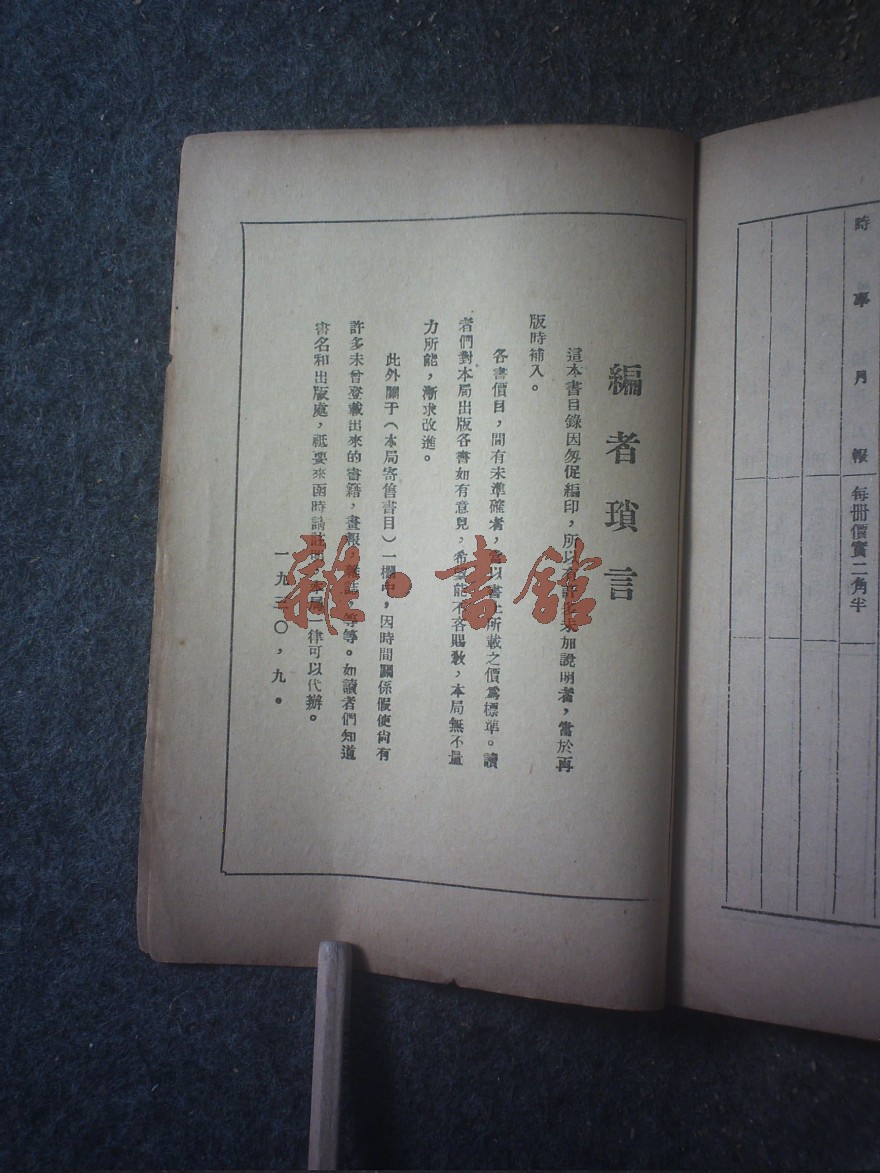 時事月報 每册價實二角半
編者瑣言
這本書目錄因匆促編印，所以有許多未加說明者，當於再
版時補入。
各書價目，間有未準確者，當以書上所載之價爲標準。讀
者們對本局出版各書如有意見，希望能不吝賜教，本局無不量
力所能，漸求改進。
此外關于（本局寄售書目）一欄中，因時間關係假使尙有
許多未曾登載出來的書籍，畫報，雜誌，等等。如讀者們知道
書名和出版處，祇要來函時請註明，本局一律可以代辦。
一九三〇，九。
雜·書館